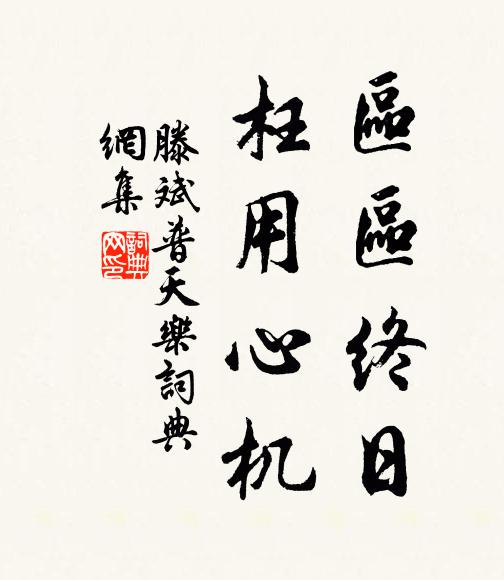 區區終日
枉用心机
滕斌普天樂詞典
網集
詞典
网印